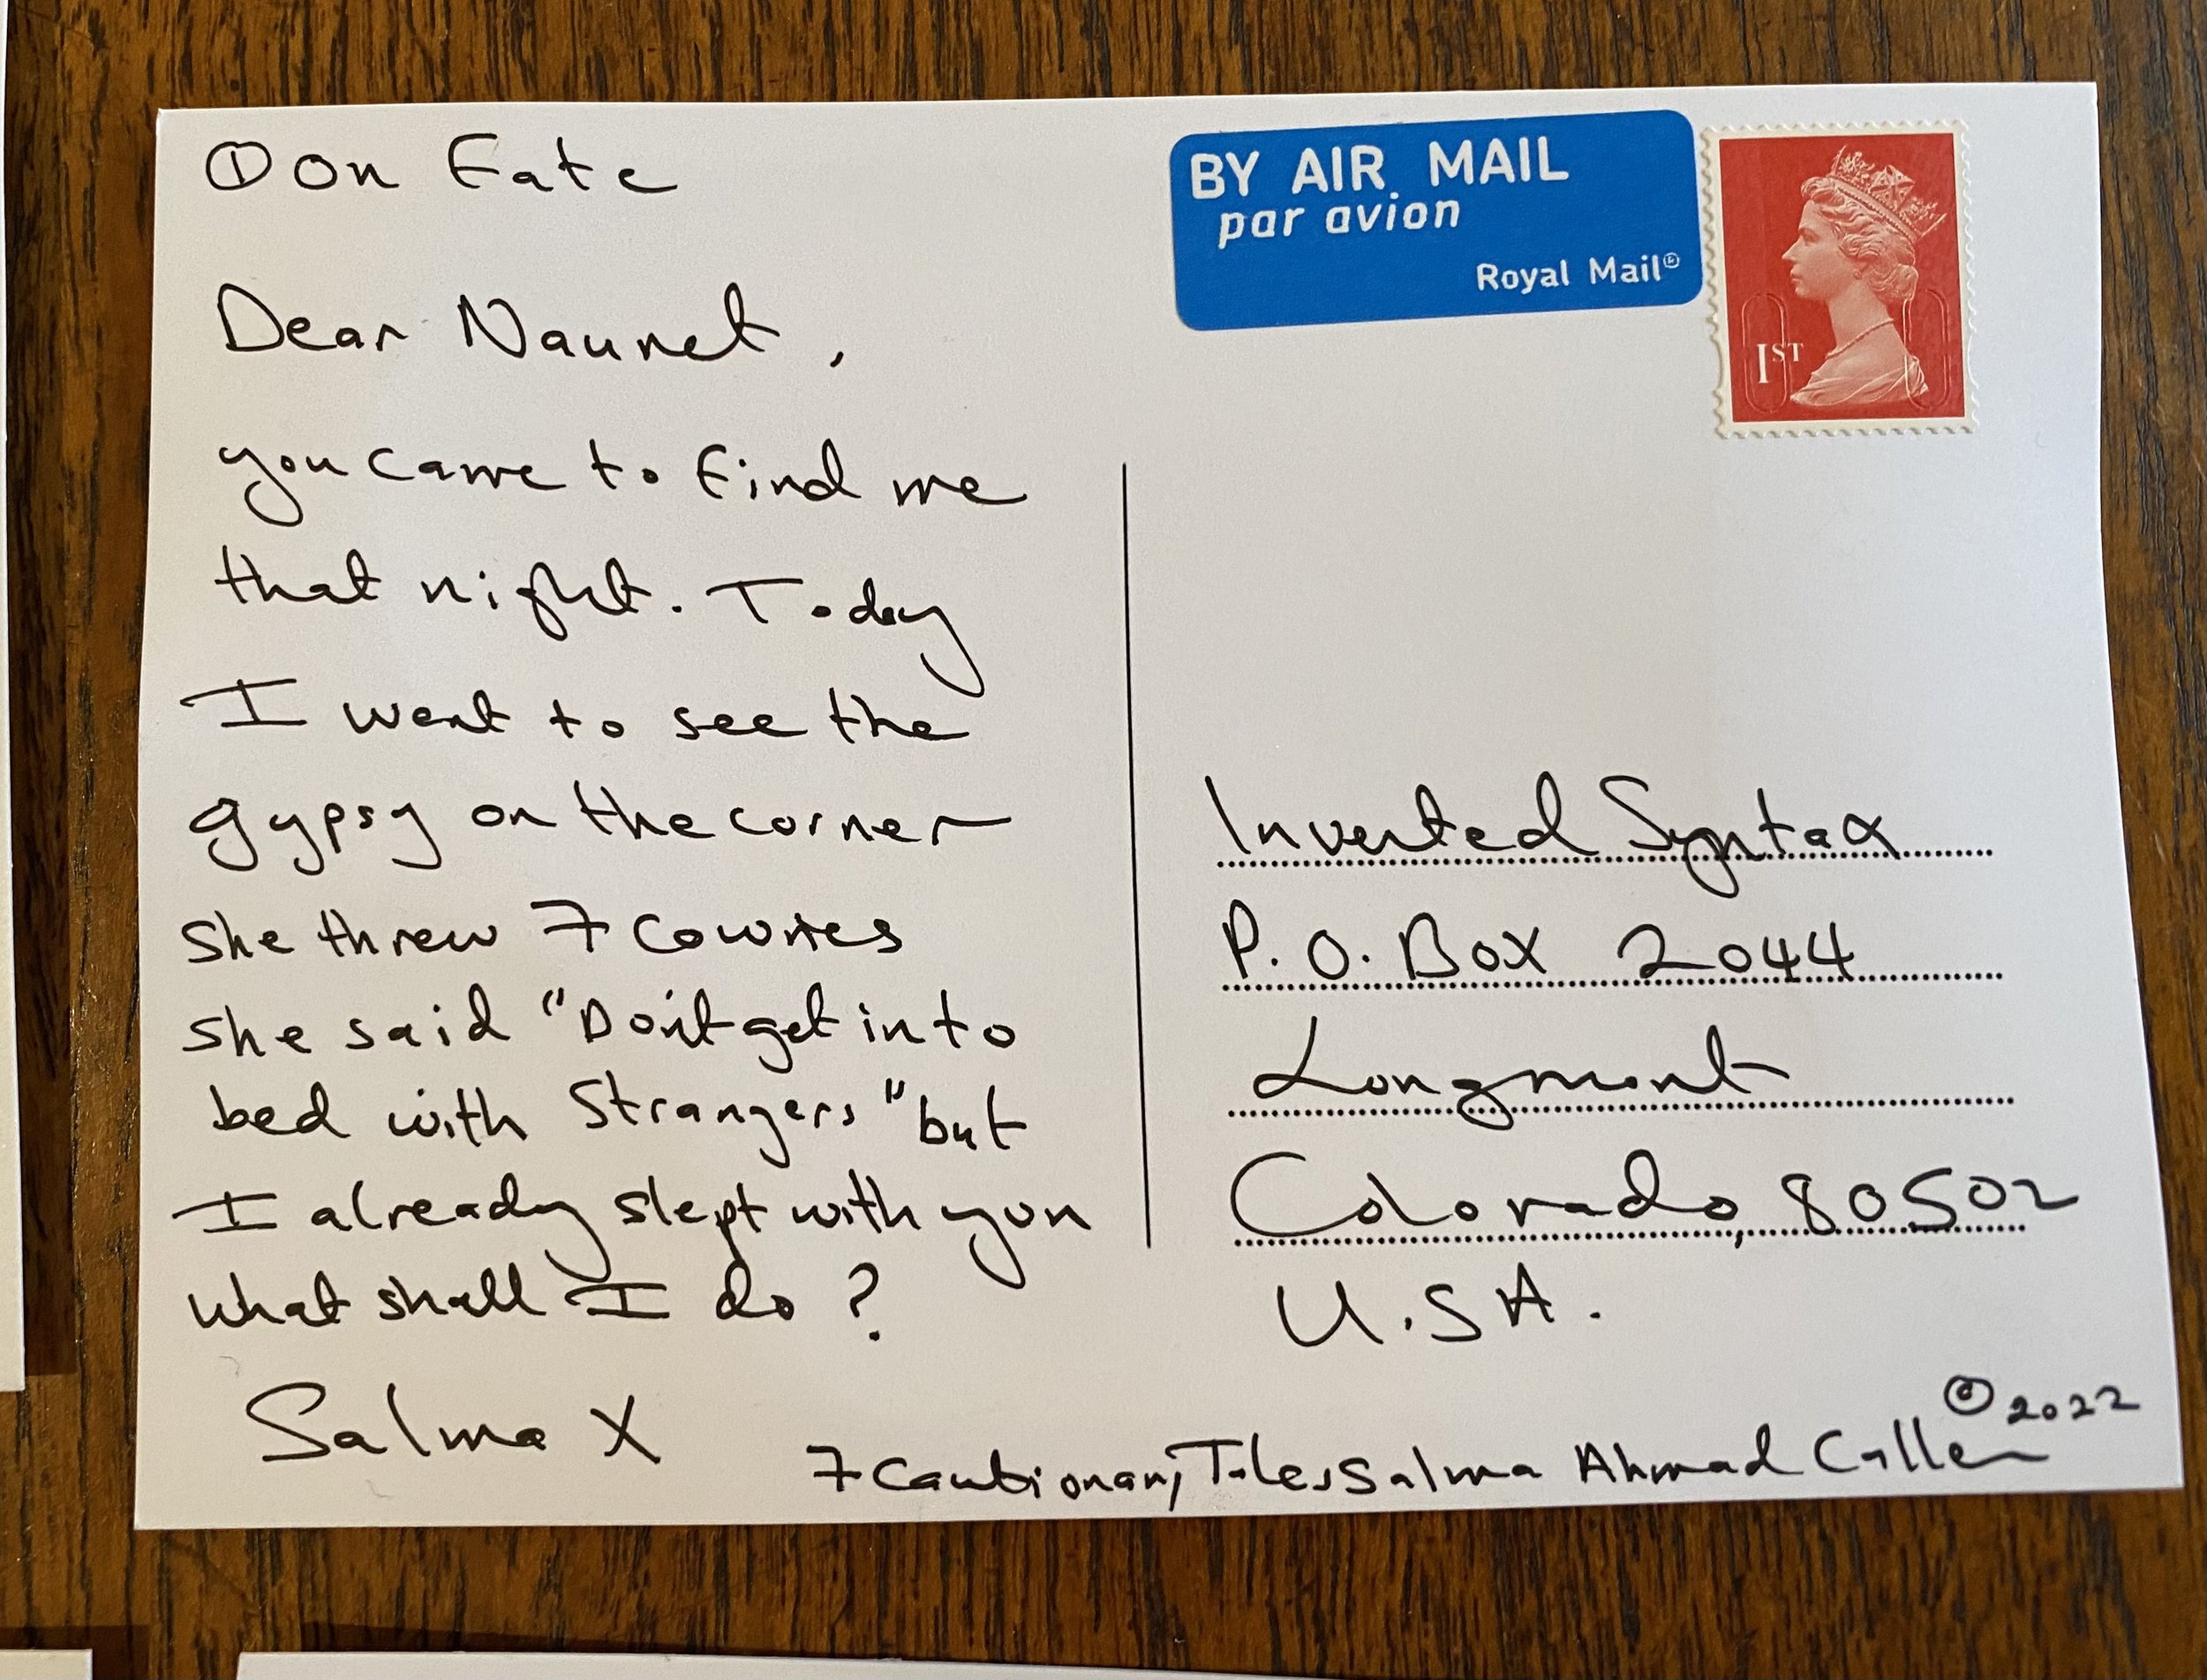 ① On Fate
Dear Naunet,
you came to find me
that night. Today
I went to see the
gypsy on the corner
she threw 7 cowries
she said "Don't get into
bed with strangers" but
I already slept with you
what shall I do?
Salma X
BY AIR MAIL
par avion
Royal Mail®
1ST
Inverted Syntax
P.O. BOX 2044
Longmont
Colorado, 80502
U.S.A.
7 Cautionary Tales Salma Ahmad Caller © 2022